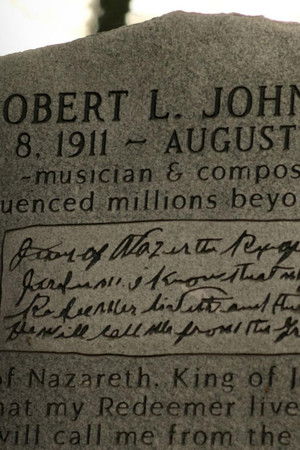 OBERT L. JOHN
8, 1911 ~ AUGUST
~musician & compos
uenced millions beyo
Jesus of Nazareth King
Jerusalem. I know that my
Redeemer liveth and tha
He will call me from the Gr
of Nazareth, King of J
at my Redeemer live
will call me from the